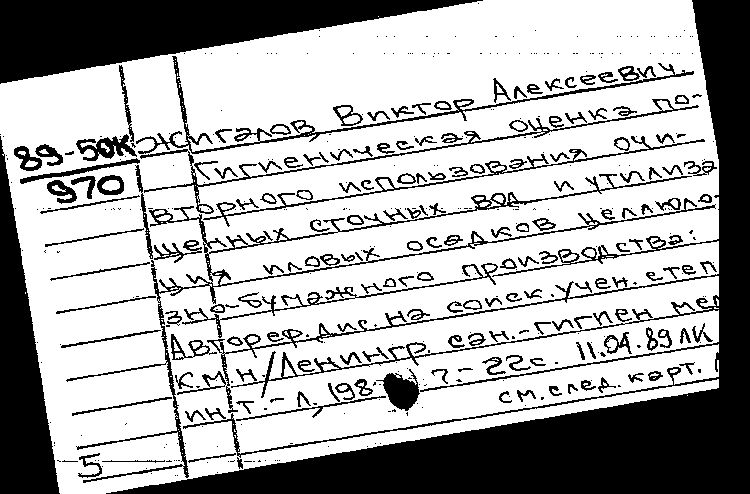 89-50к
970
Жигалов, Виктор Алексеевич.
Гигиеническая оценка по-
вторного использования очи-
щенных сточных вод и утилиза
ция иловых осадков целлюло
зно-бумажного производства:
Автореф. дис. на соиск. учен. степ
к.м.н. / Ленингр. сан.-гигиен ме
ин-т. - Л., 198 ?. - 22с. 11.04.89 ЛК
см. след. карт.
5